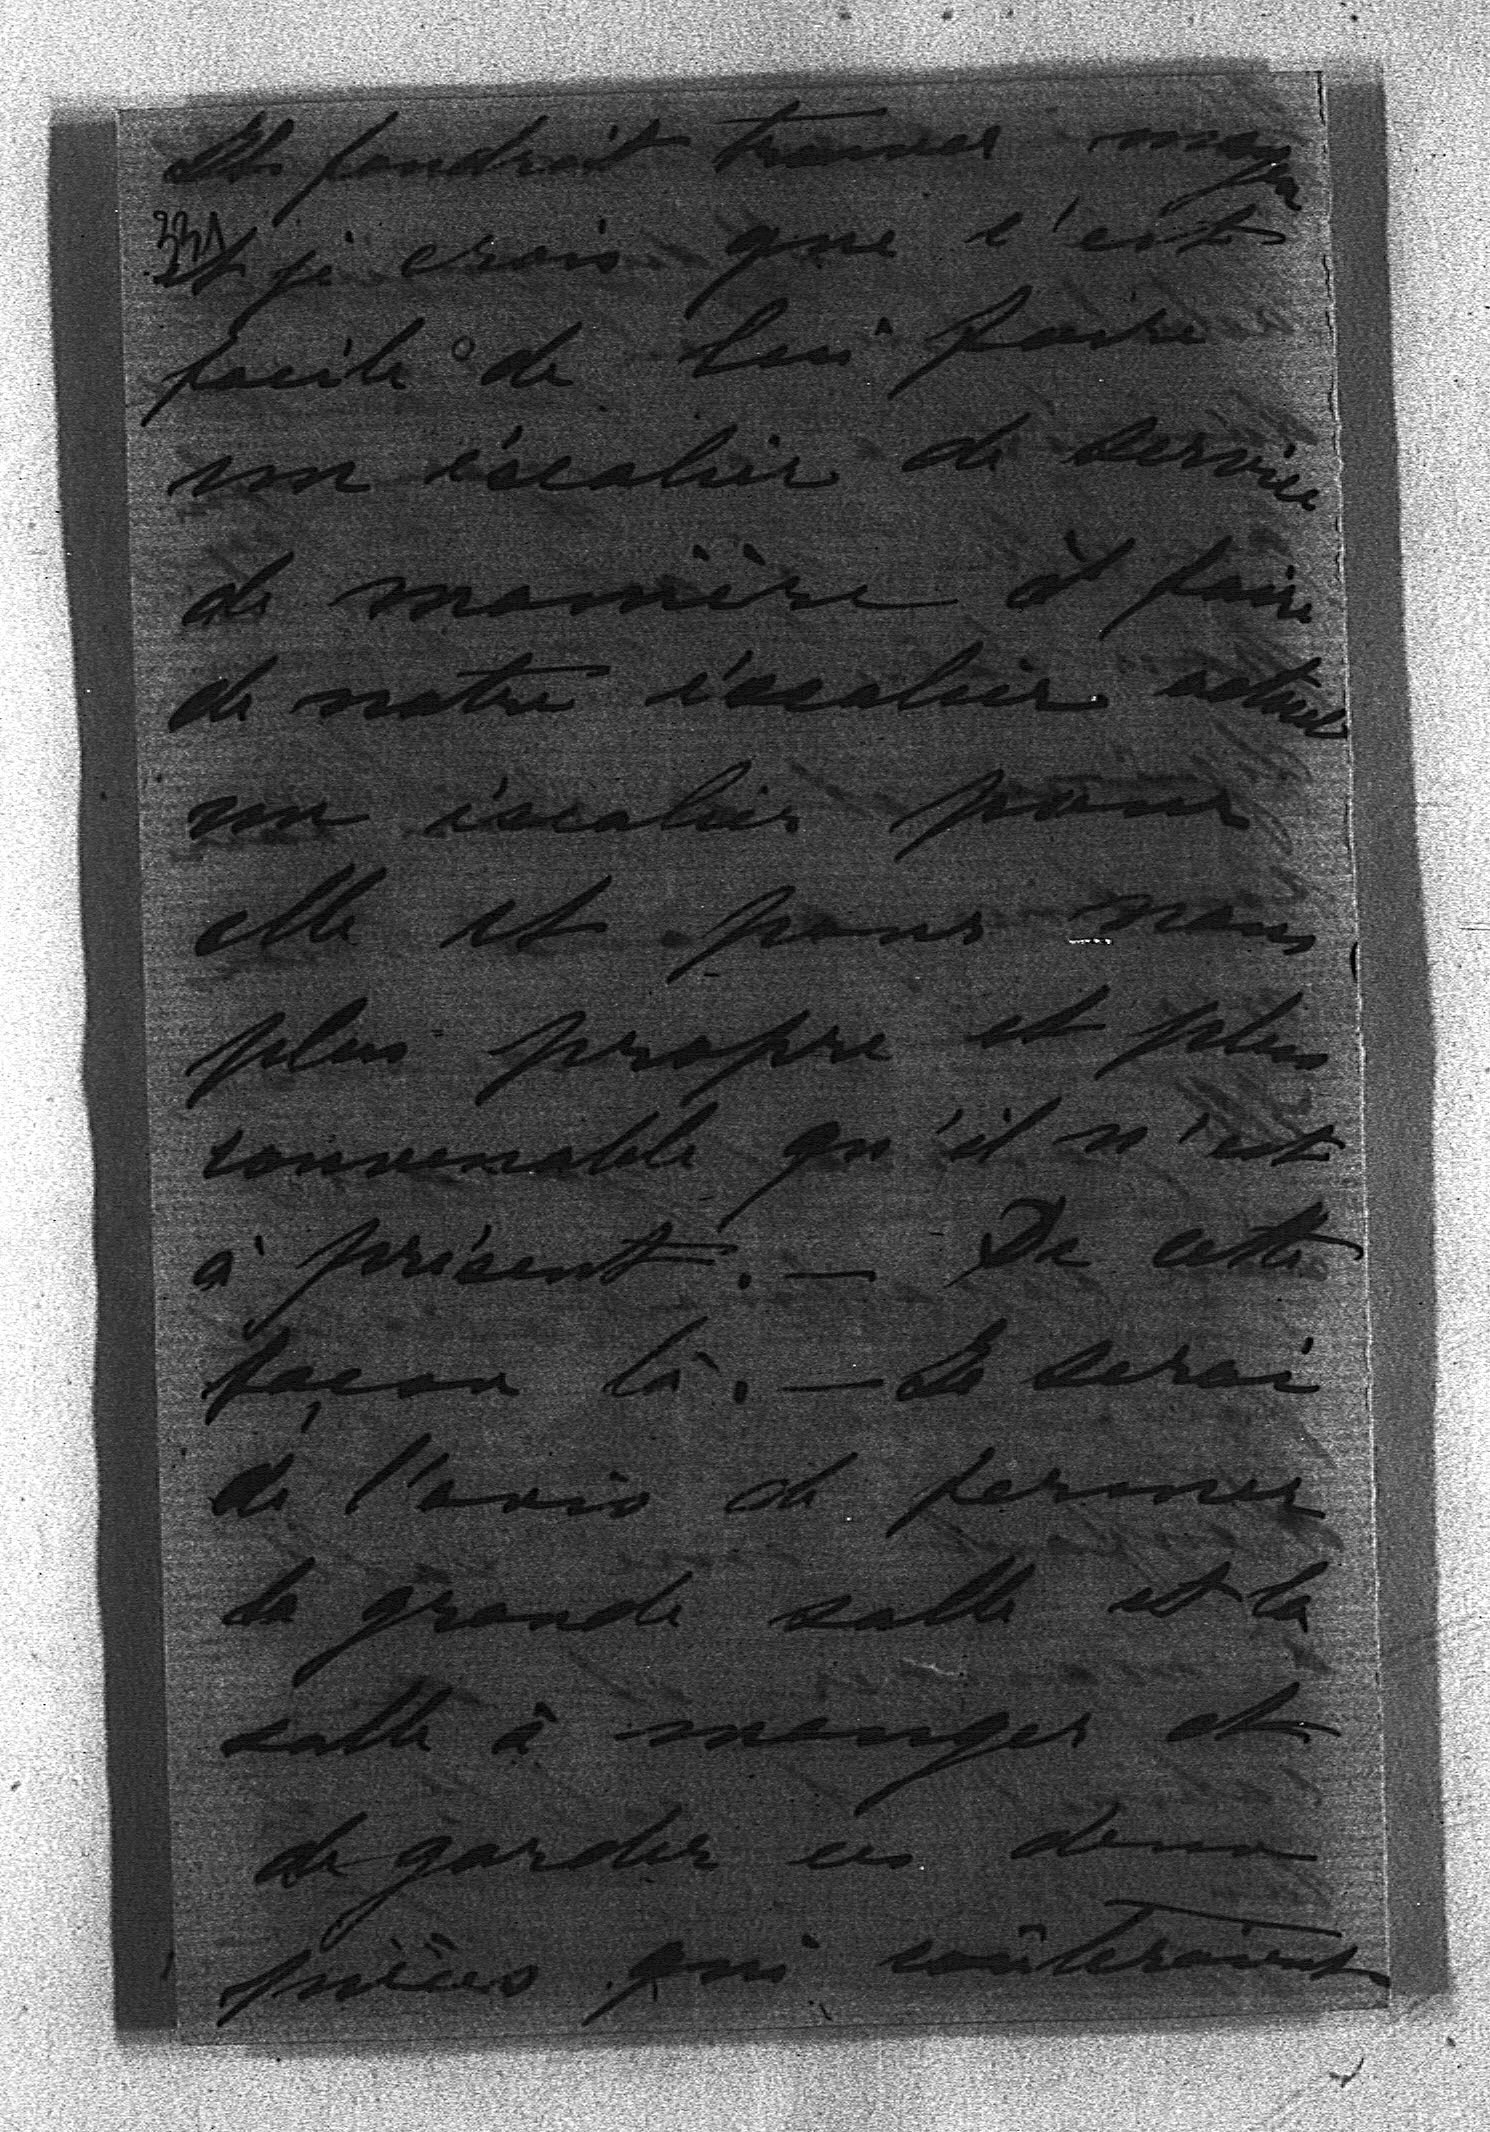 Il faudrait trouver moyen
331
et je crois que c'est
facile de lui faire
un éscalier de service
de manière à faire
de notre éscalier actuel
un éscalier pour
elle et pour nous
plus propre et plus
convenable qu'il n'est
à présent. — De cette
façon là. — Je serai
de l'avis de fermer
la grande salle et la
salle à manger et
de garder ces deux
pièces qui coûteraient